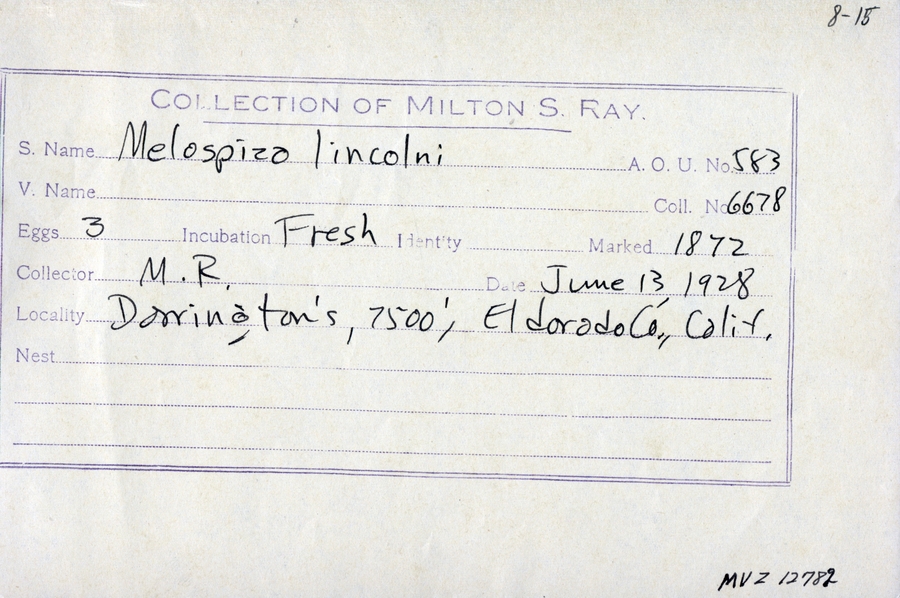 8-15
COLLECTION OF MILTON S. RAY.
S. Name Melospiza lincolni A. O. U. No. 583
V. Name Coll. No. 6678
Eggs 3 Incubation Fresh Identity Marked 1872
Collector M.R. Date June 13, 1928
Locality Dorrington's, 7500', Eldorado Co., Calif.
Nest
MVZ 12782